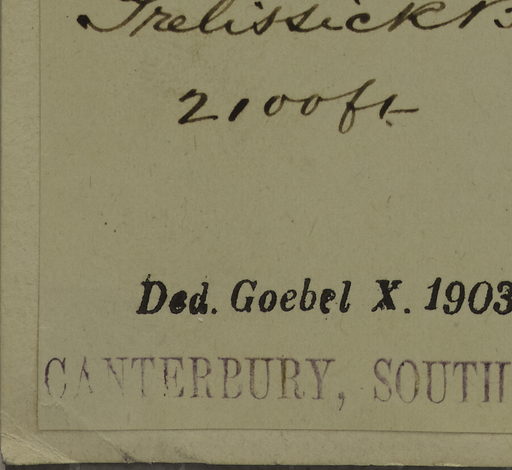 Trelissick B
2100ft
Ded. Goebel X. 1903
CANTERBURY, SOUTH